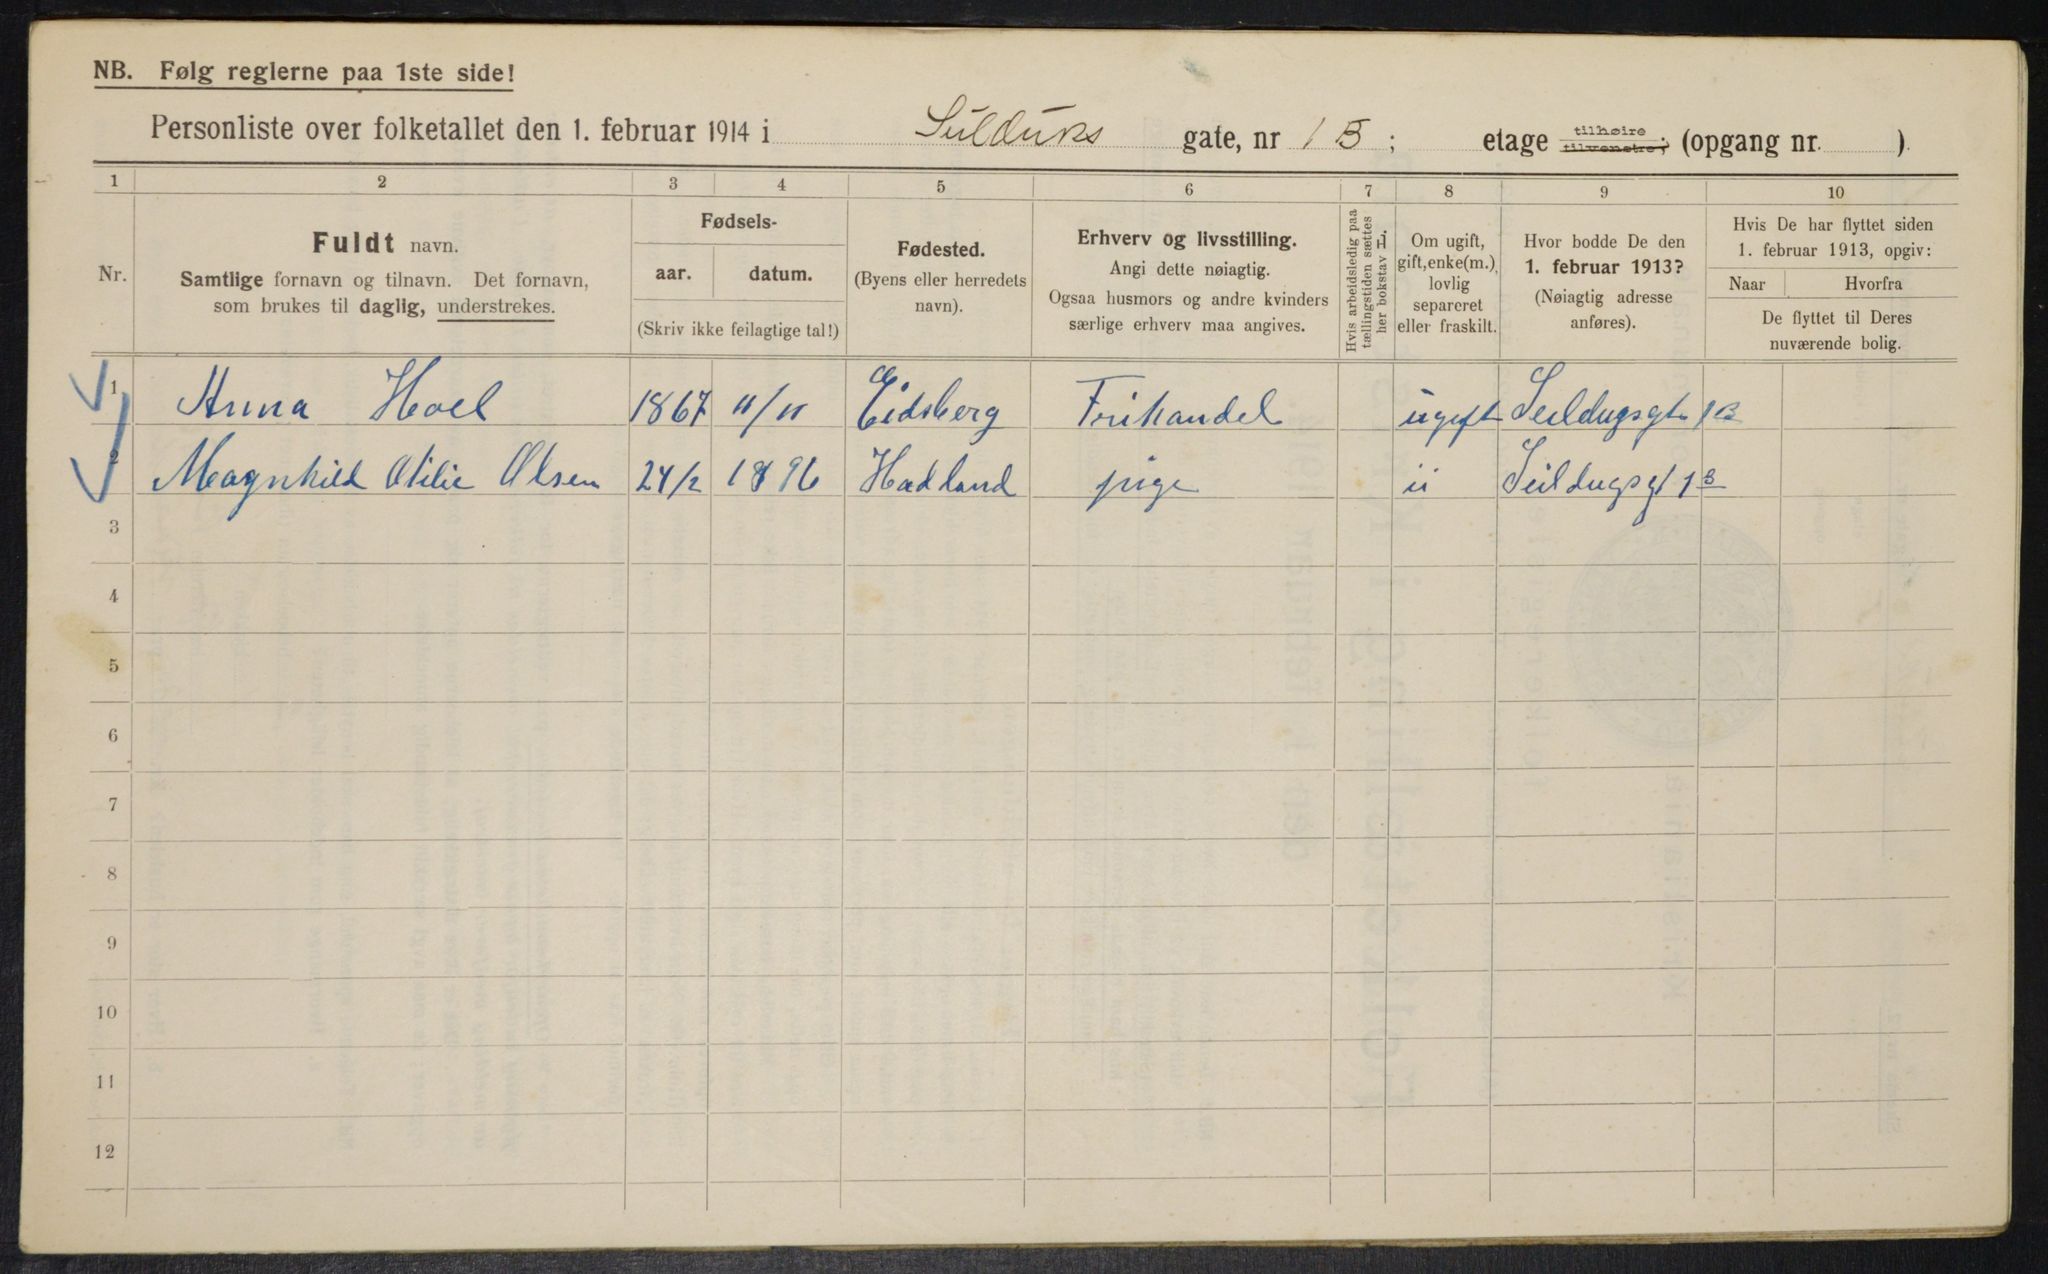 NB. Følg reglerne paa 1ste side!
Personliste over folketallet den 1. februar 1914 i Seilduks gate, nr 1 B; etage tilhøire tilvenstre; (opgang nr. )
1 2 3 4 5 6 7 8 9 10
Nr.
Fuldt navn.
Samtlige fornavn og tilnavn. Det fornavn,
som brukes til daglig, understrekes.
Fødsels-
aar. datum.
(Skriv ikke feilagtige tal!)
Fødested.
(Byens eller herredets
navn).
Erhverv og livsstilling.
Angi dette nøiagtig.
Ogsaa husmors og andre kvinders
særlige erhverv maa angives.
Hvis arbeidsledig paa
tællingstiden sættes
her bokstav L.
Om ugift,
gift, enke(m.),
lovlig
separeret
eller fraskilt.
Hvor bodde De den
1. februar 1913?
(Nøiagtig adresse
anføres).
Hvis De har flyttet siden
1. februar 1913, opgiv:
Naar Hvorfra
De flyttet til Deres
nuværende bolig.
1 Anna Hoel 1867 11/11 Eidsberg Frihandel ugift Seildugsgt 1B
2 Magnhild Otilie Olsen 24/2 1896 Hadland pige ii Seildugsgt 1B
3
4
5
6
7
8
9
10
11
12